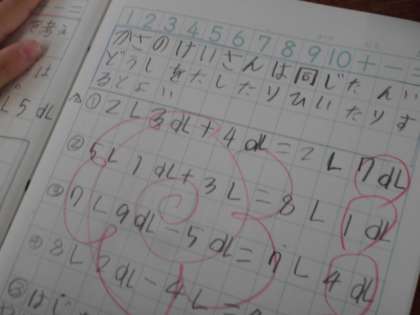 1 2 3 4 5 6 7 8 9 10 + -
かさのけいさんは同じたんい
どうしをたしたりひいたりす
るとよい
① 2L3dL+4dL=2L7dL
② 5L1dL+3L=8L1dL
③ 7L9dL-5dL=7L4dL
④ 8L2dL-4L=
は
L5dL